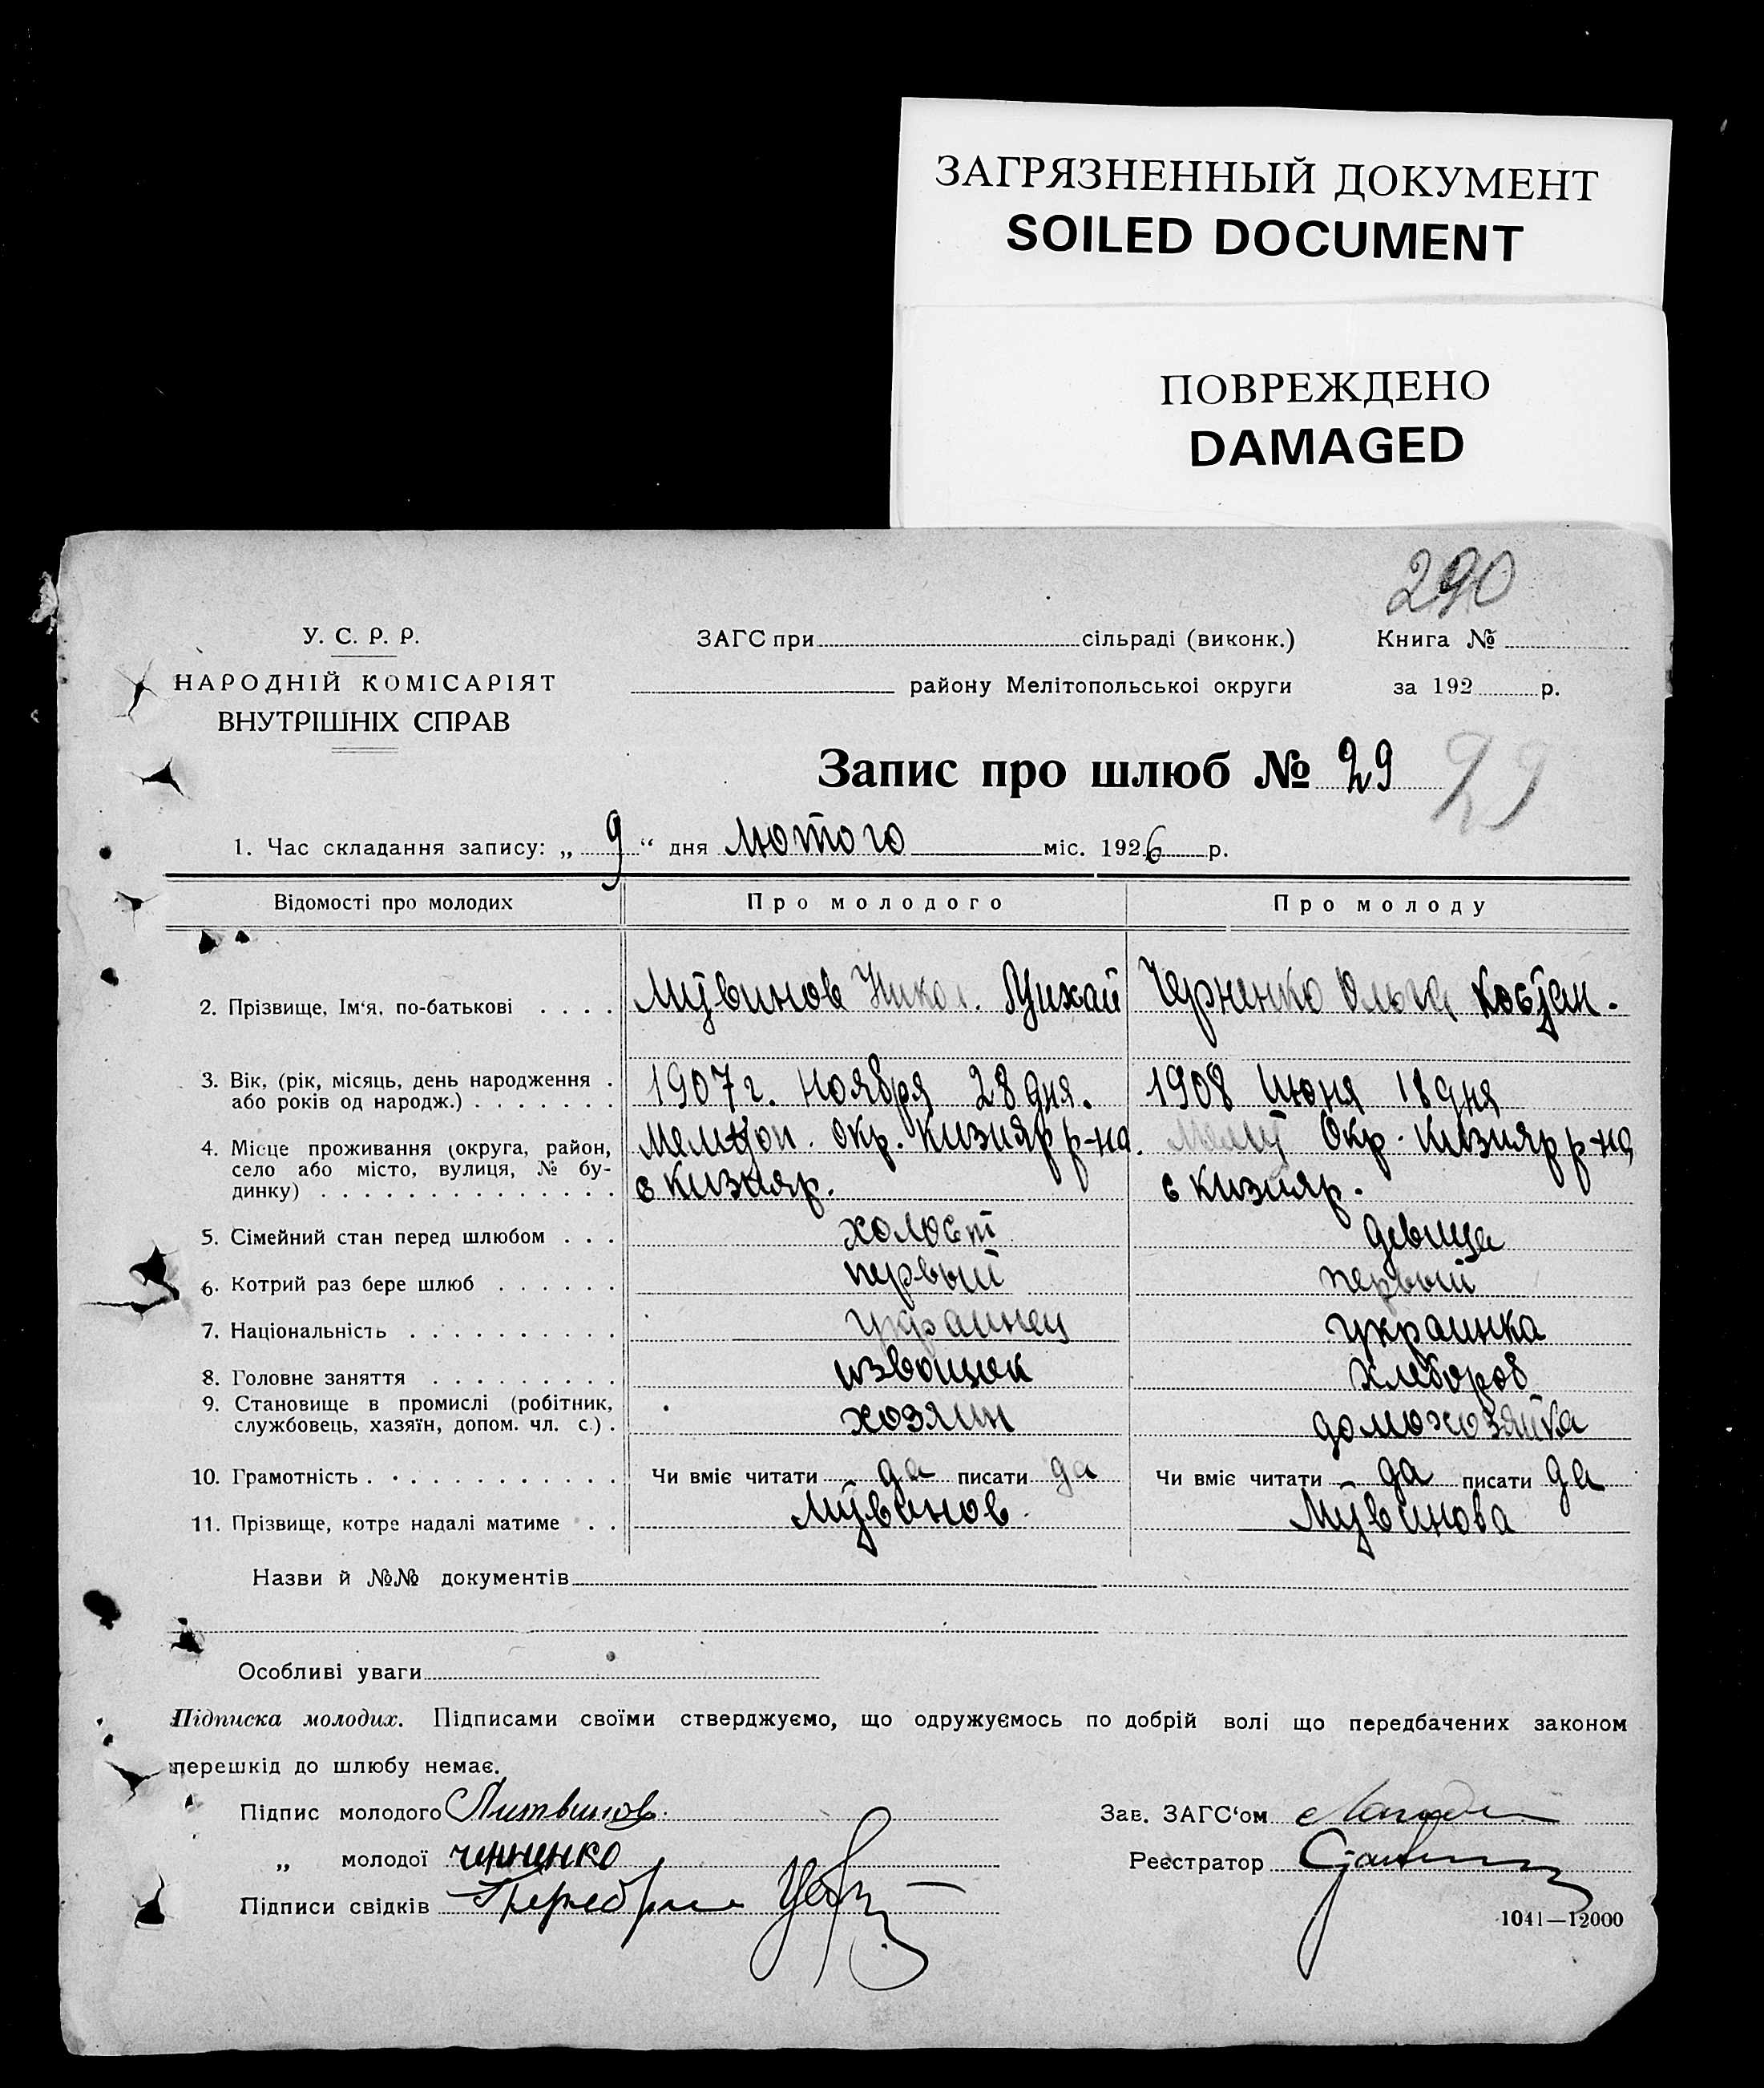 ЗАГРЯЗНЕННЫЙ ДОКУМЕНТ
SOILED DOCUMENT
ПОВРЕЖДЕНО
DAMAGED
290
У. С. Р. Р.
НАРОДНІЙ КОМІСАРІЯТ
ВНУТРІШНІХ СПРАВ
ЗАГС при сільраді (виконк.) Книга №
району Мелітопольськоі округи за 192 р.
Запис про шлюб № 29 29
1. Час складання запису: „ 9 “ дня Лютого міс. 1926 р.
Відомості про молодих Про молодого Про молоду
2. Прізвище, Ім‘я, по-батькові . . . . Литвинов Никол. Михай Черненко Ольга Костан.
3. Вік, (рік, місяць, день народження . 1907 г. Ноября 28 дня. 1908 Июня 18 дня
або років од народж.) . . . . . . .
4. Місце проживання (округа, район, Мелитоп. Окр. Кизияр р-на. Мелит Окр. Кизияр р-на
село або місто, вулиця, № бу-
динку) . . . . . . . . . . . . . . с Кизияр. с Кизияр.
5. Сімейний стан перед шлюбом . . . холост девица
6. Котрий раз бере шлюб . . . . . . первый первый
7. Національність . . . . . . . . . . украинец украинка
8. Головне заняття . . . . . . . . . извощек хлебороб
9. Становище в промислі (робітник,
службовець, хазяїн, допом. чл. с.) . хозяин домохозяйка
10. Грамотність . . . . . . . . . . . . Чи вміє читати да писати да Чи вміє читати да писати да
11. Прізвище, котре надалі матиме . . Литвинов. Литвинова
Назви й №№ документів
Особливі уваги
Підписка молодих. Підписами своїми стверджуємо, що одружуємось по добрій волі що передбачених законом
перешкід до шлюбу немає.
Підпис молодого Литвинов. Зав. ЗАГС‘ом
„ молодої черненко Реєстратор
Підписи свідків
1041—12000